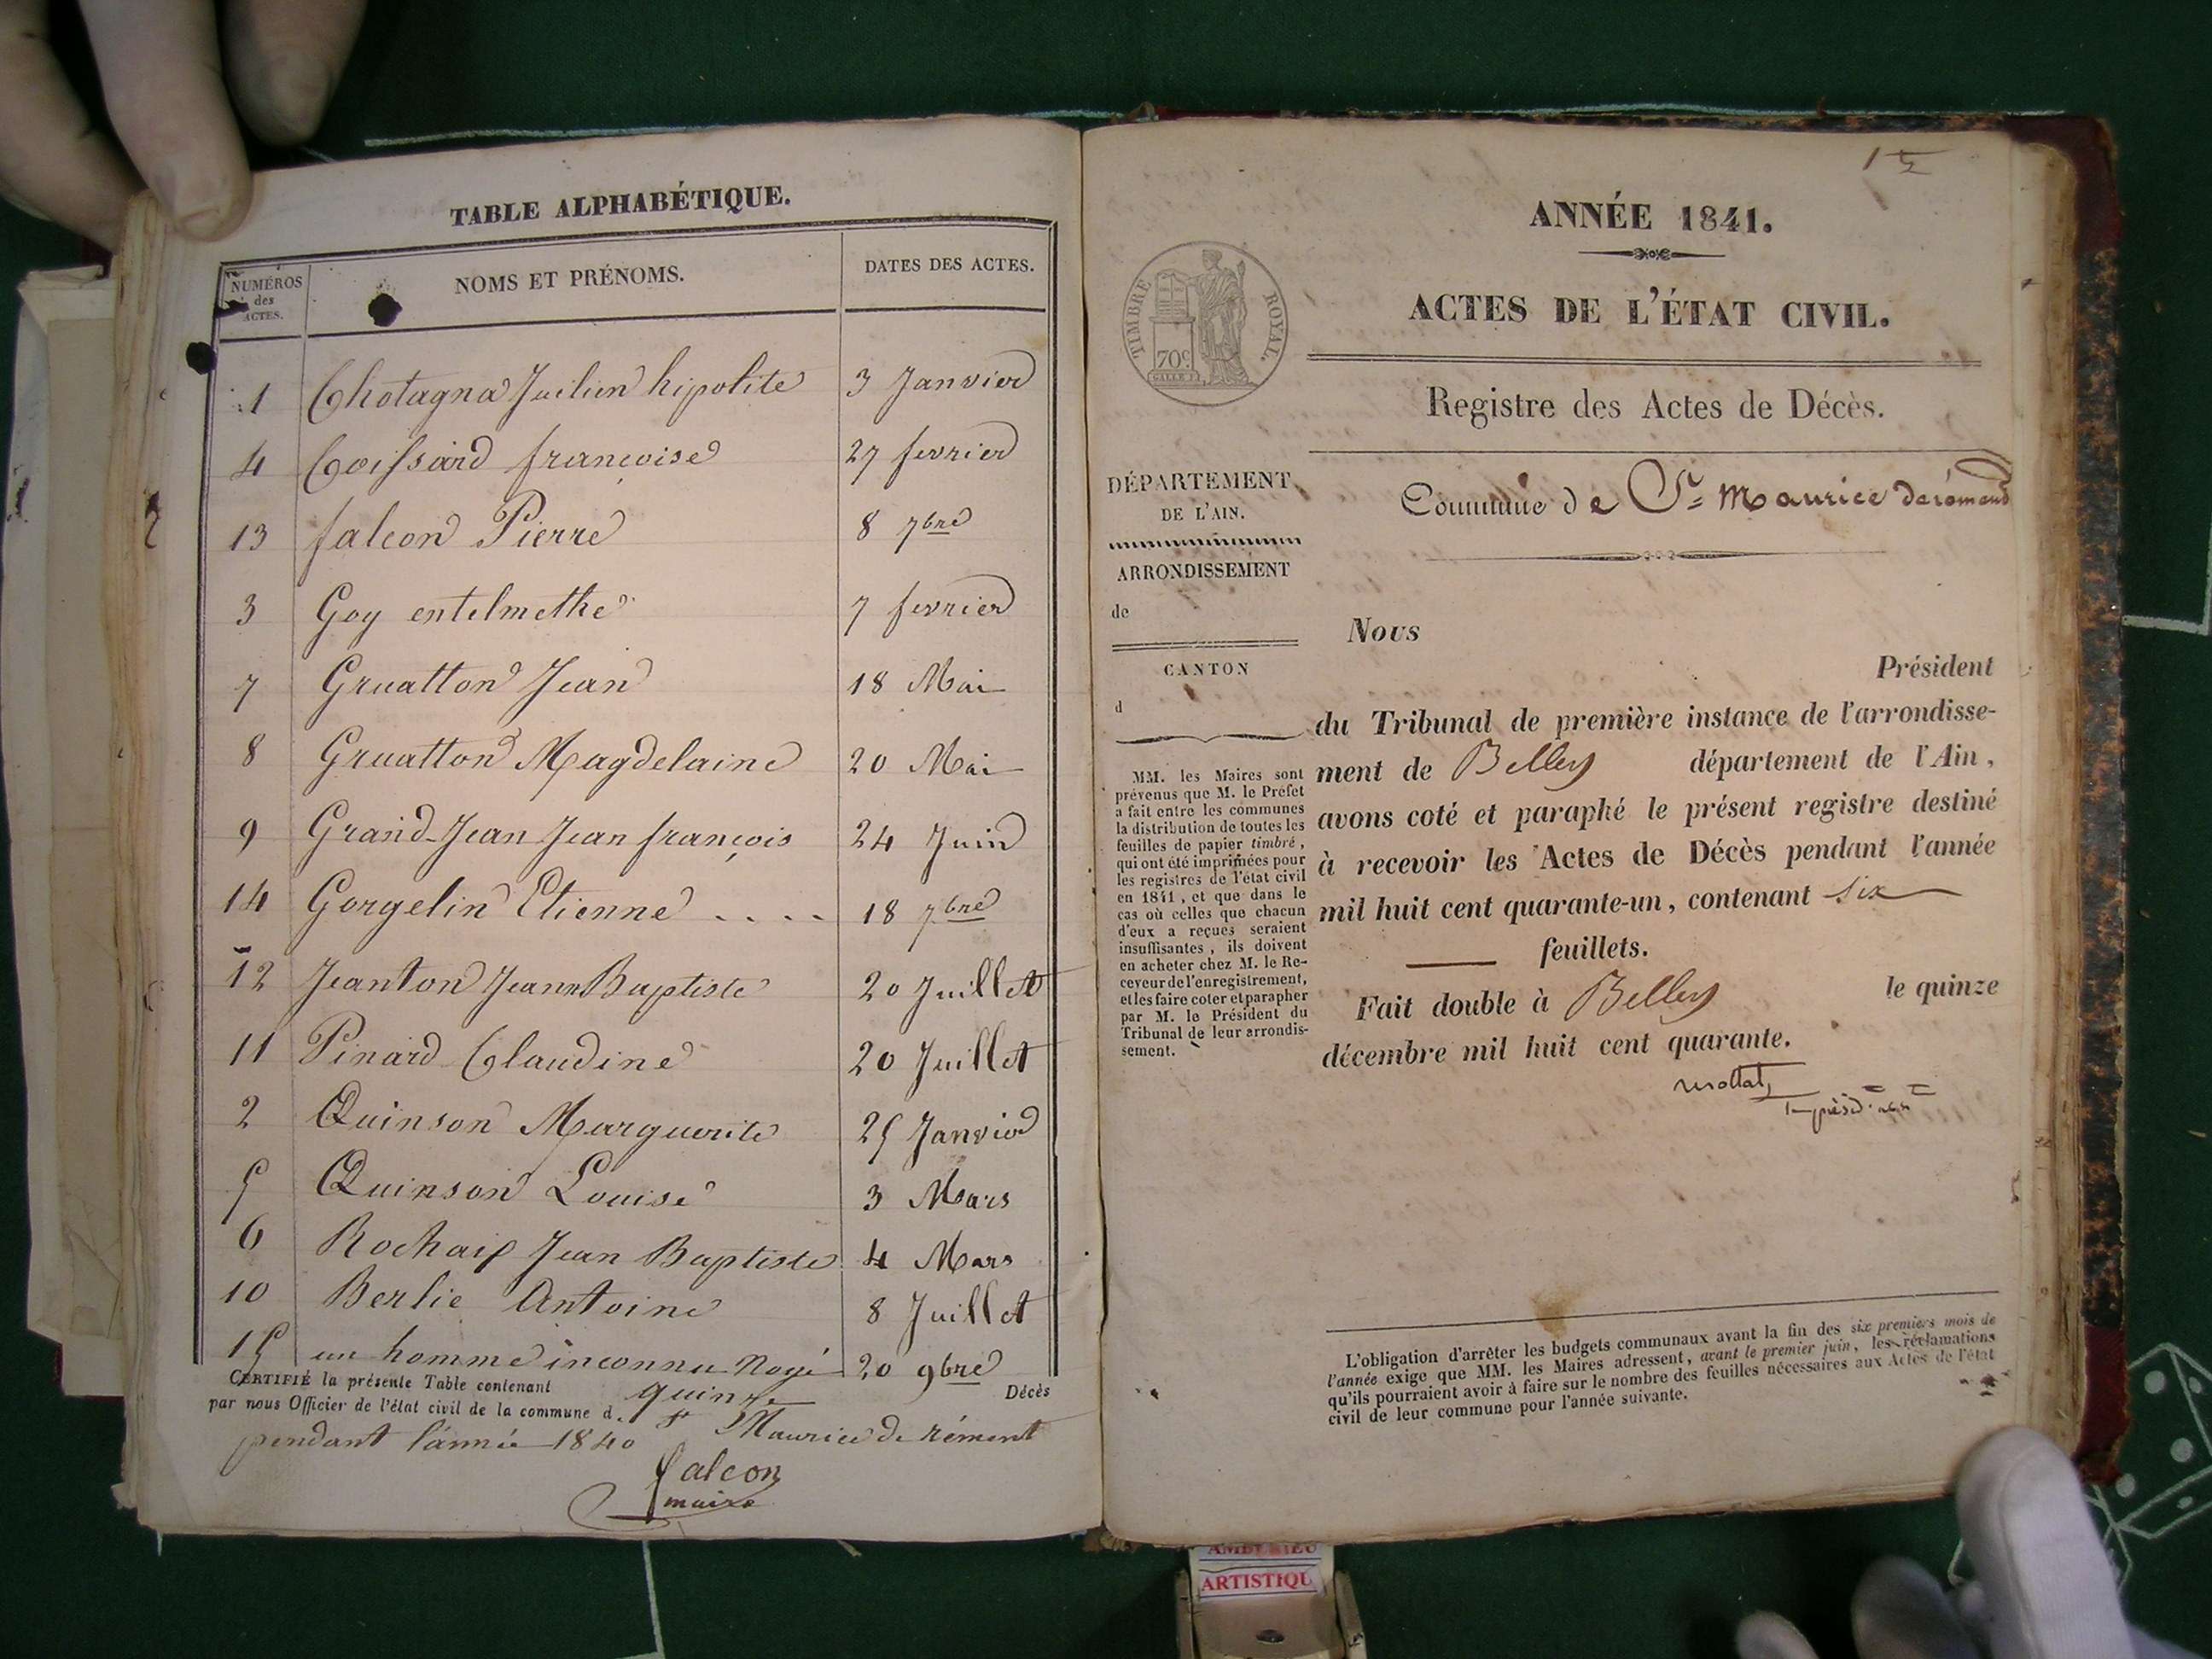 TABLE ALPHABÉTIQUE.
NUMÉROS des ACTES. NOMS ET PRÉNOMS. DATES DES ACTES.
1 Chotagna Juilien hipolite 3 Janvier
4 Coissard françoise 27 fevrier
13 falcon Pierre 8 7bre
3 Goy entelmethe 7 fevrier
7 Gruatton Jean 18 Mai
8 Gruatton Magdelaine 20 Mai
9 Grand-Jean Jean françois 24 Juin
14 Gorgelin Etienne .... 18 7bre
12 Jeanton Jean Baptiste 20 Juillet
11 Pinard Claudine 20 Juillet
2 Quinson Marguerite 25 Janvier
5 Quinson Louise 3 Mars
6 Rochaix Jean Baptiste 4 Mars
10 Berlie Antoine 8 Juillet
15 un homme inconnu Noyé 20 9bre
CERTIFIÉ la présente Table contenant quinze Décès
par nous Officier de l'état civil de la commune d. St Maurice de rément
pendant l'année 1840
falcon
maire
ANNÉE 1841.
TIMBRE ROYAL.
70c
ACTES DE L'ÉTAT CIVIL.
Registre des Actes de Décès.
DÉPARTEMENT
DE L'AIN.
ARRONDISSEMENT
de
CANTON
d
MM. les Maires sont
prévenus que M. le Préfet
a fait entre les communes
la distribution de toutes les
feuilles de papier timbré,
qui ont été imprimées pour
les registres de l'état civil
en 1841, et que dans le
cas où celles que chacun
d'eux a reçues seraient
insuffisantes, ils doivent
en acheter chez M. le Re-
ceveur de l'enregistrement,
et les faire coter et parapher
par M. le Président du
Tribunal de leur arrondis-
sement.
Commune de St Maurice deremend
Nous
Président
du Tribunal de première instance de l'arrondisse-
ment de Belley département de l'Ain,
avons coté et paraphé le présent registre destiné
à recevoir les Actes de Décès pendant l'année
mil huit cent quarante-un, contenant six
feuillets.
Fait double à Belley le quinze
décembre mil huit cent quarante.
L'obligation d'arrêter les budgets communaux avant la fin des six premiers mois de
l'année exige que MM. les Maires adressent, avant le premier juin, les réclamations
qu'ils pourraient avoir à faire sur le nombre des feuilles nécessaires aux Actes de l'état
civil de leur commune pour l'année suivante.
ARTISTIQU